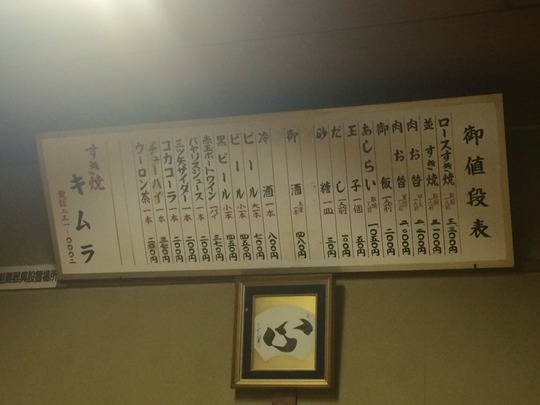 御値段表
ロースすき焼 三、三〇〇円
並すき焼 二、一〇〇円
肉お替
肉お替
御飯 二〇〇円
あしらい 三五〇円
玉子 一個 五〇円
だし 一人前
砂糖 一皿 三〇円
御酒 四八〇円
冷酒 一本 八〇〇円
ビール 大本 七〇〇円
ビール 小本 四五〇円
黒ビール 小本 四五〇円
赤玉ポートワイン 一パイ 三七〇円
バヤリスジュース 一本 二〇〇円
三ツ矢サイダー 一本 二〇〇円
コカコーラ 一本 二〇〇円
チューハイ 一本 三七〇円
ウーロン茶 一本 二〇〇円
すき焼
キムラ
電話二三一・〇〇〇二
心